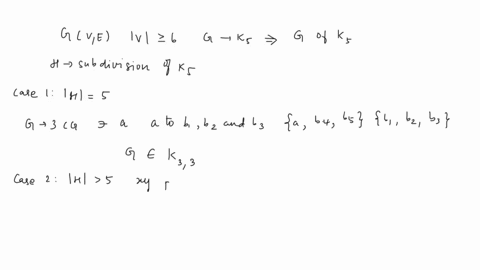 G(V,E) |V| ≥ 6 G → K5 ⇒ G of K5
H → subdivision of K5
Case 1: |H| = 5
G → 3 CG ∋ a a to b1, b2 and b3 {a, b4, b5} {b1, b2, b3}
G ∈ K3,3
Case 2: |H| > 5 xy